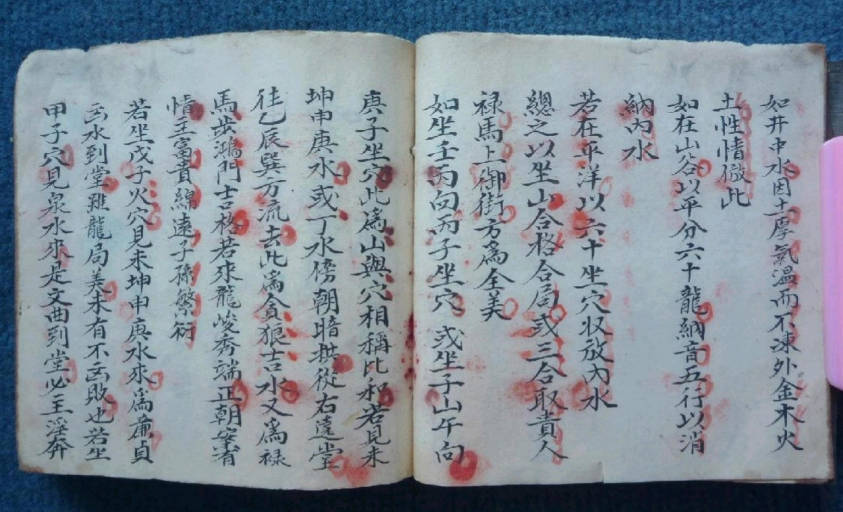 如井中水因土厚氣温而不凍外金木火
土性情倣此
如在山谷以平分六十龍納音五行以消
納內水
若在平洋以六十坐穴收放內水
總之以坐山合格合局或三合取貴人
祿馬上御街方為全美
如坐壬丙向丙子坐穴或坐子山午向
庚子坐穴此為山與穴相稱比和若見未
坤申庚水或丁水傍朝暗拱從右遶堂
往乙辰巽方流去此為貪狼吉水又為祿
馬步鴻門吉格若來龍峻秀端正朝案有
情主富貴綿遠子孫繁衍
若坐戊子火穴見未坤申庚水來為廉貞
凶水到堂雖龍局美未有不凶敗也若坐
甲子穴見泉水來是文曲到堂必主淫奔